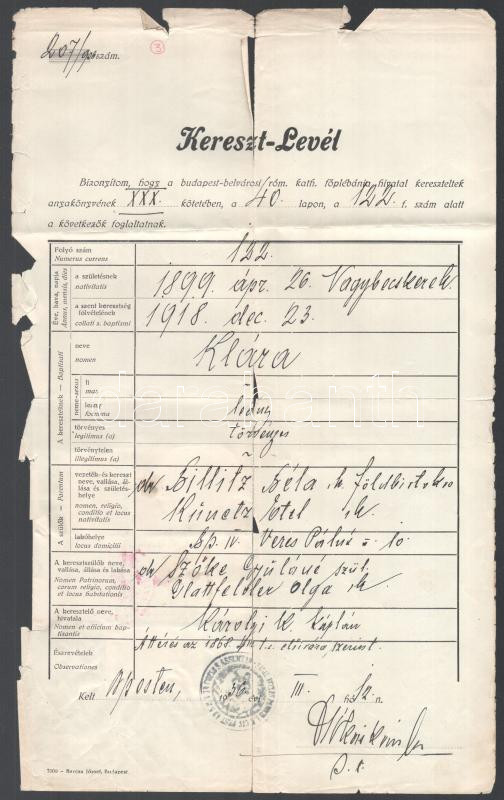 207/ szám.
3
Kereszt-Levél
Bizonyítom, hogy a budapest-belvárosi róm. kath. főplébánia hivatal kereszteltek
anyakönyvének XXX. kötetében, a 40 lapon, a 122 f. szám alatt
a következők foglaltatnak.
Folyó szám
Numerus currens
122.
Éve, hava, napja
Annus, mensis, dies
a születésnek
nativitatis
1899 ápr. 26. Nagybecskerek
a szent keresztség
fölvételének
collati s. baptismi
1918 dec. 23.
A keresztelőnek — Baptisati
neve
nomen
Klára
neme-sexus
fi
mas.
leány
foemina
leány
törvényes
legitimus (a)
törvényes
törvénytelen
illegitimus (a)
A szülők — Parentum
vezeték- és kereszt
neve, vallása, ál-
lása és születés-
helye
nomen, religio,
conditio et locus
nativitatis
Billitz Béla földbirtokos
Kunetz Etel
lakóhelye
locus domicilii
Bp. IV. Veres Pálné u. 10
A keresztszülők neve,
vallása, állása és lakása
Nomen Patrinorum,
earum religio, conditio
et locus habitationis
Szőke Gyuláné szül.
Glattfelder Olga
A keresztelő neve,
hivatala
Nomen et officium bap-
tisantis
Károlyi K. káplán
Észrevételek
Observationes
Áttérés az 1868 t. c. előírása szerint.
Kelt Bpesten, 1936 évi III. hó 12 n.
7000 – Barcza József, Budapest.
darabanth